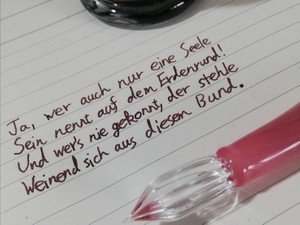 Ja, wer auch nur eine Seele
Sein nennt auf dem Erdenrund!
Und wer's nie gekonnt, der stehle
Weinend sich aus diesem Bund.